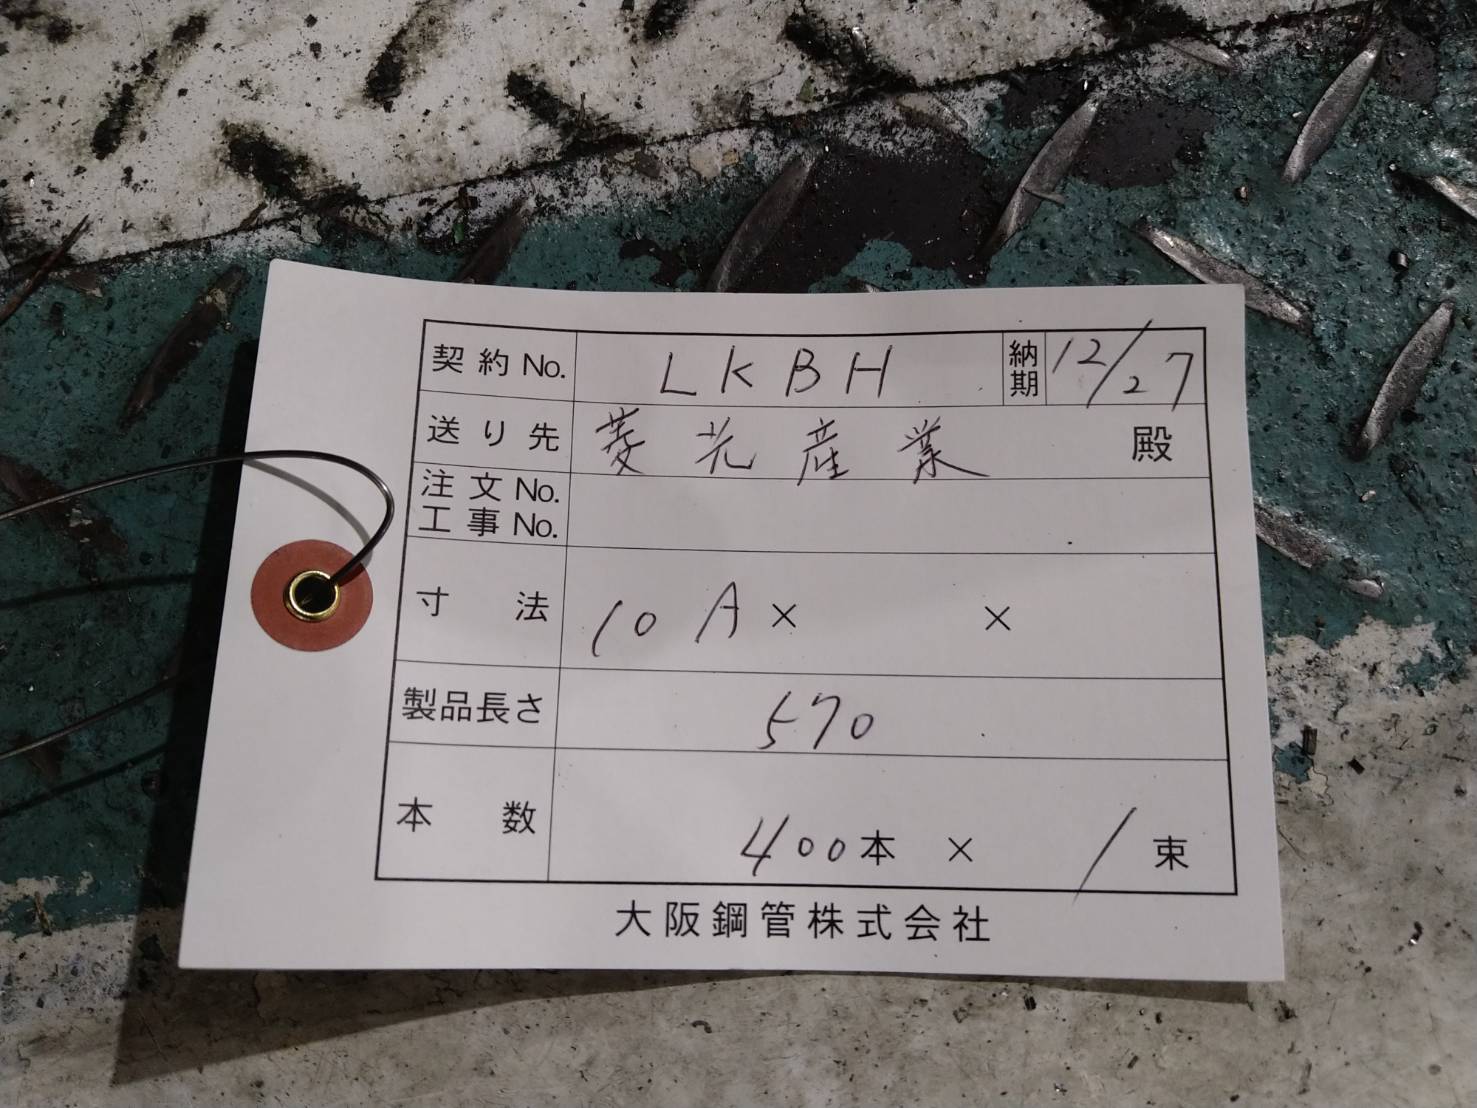 契約No. LKBH 納期 12/27
送り先 菱光産業 殿
注文No.
工事No.
寸法 10A× ×
製品長さ 570
本数 400本 × 1束
大阪鋼管株式会社